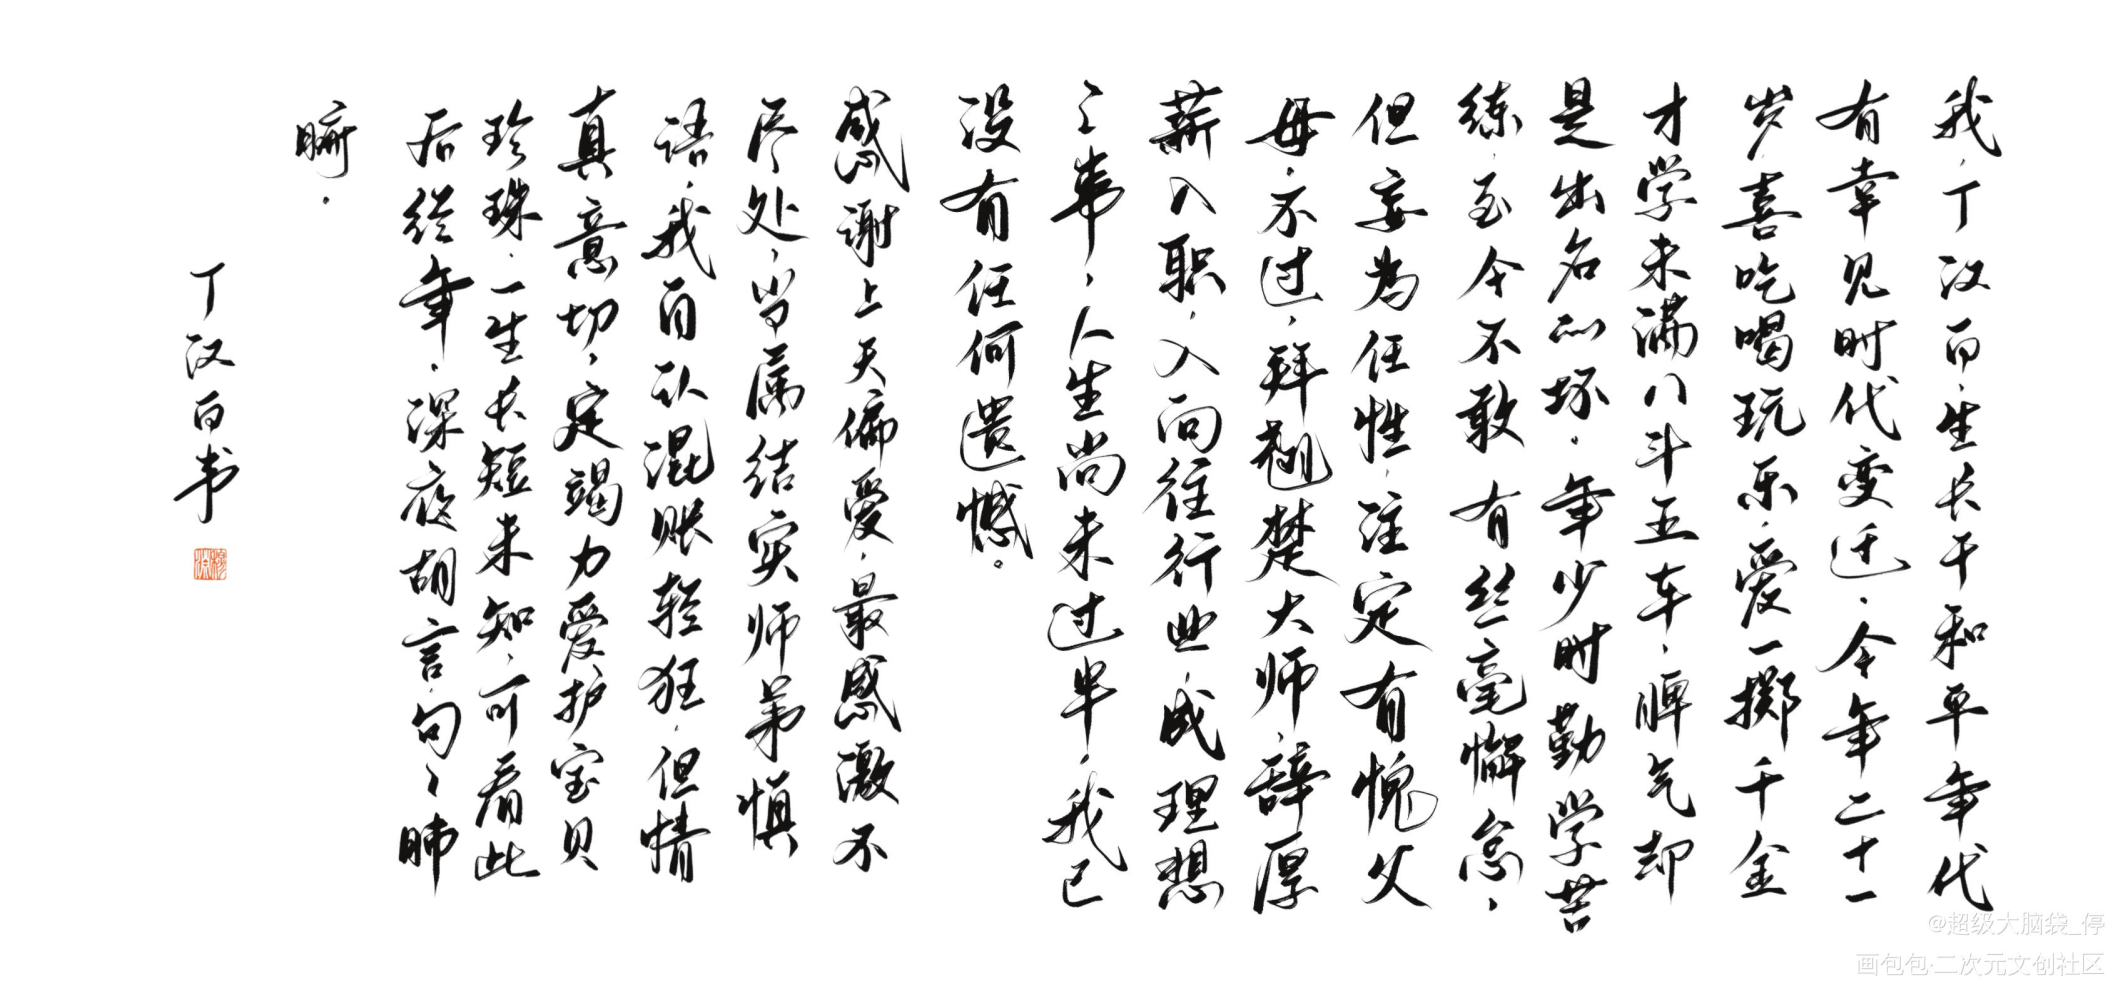 我，丁汉白，生长于和平年代
有幸见时代变迁，今年二十一
岁，喜吃喝玩乐，爱一掷千金
才学未满八斗五车，脾气却
是出名的坏。年少时勤学苦
练，至今不敢有丝毫懈怠，
但妄为任性，注定有愧父
母，不过，拜翘楚大师，辞厚
薪入职，入向往行业，成理想
之事，人生尚未过半，我已
没有任何遗憾。
感谢上天偏爱，最感激不
尽处，当属结实师弟慎
语，我自认混账轻狂，但情
真意切，定竭力爱护宝贝
珍珠，一生长短未知，可看此
后经年，深夜胡言，句句肺
腑。
丁汉白书
@超级大脑袋_停
画包包·二次元文创社区